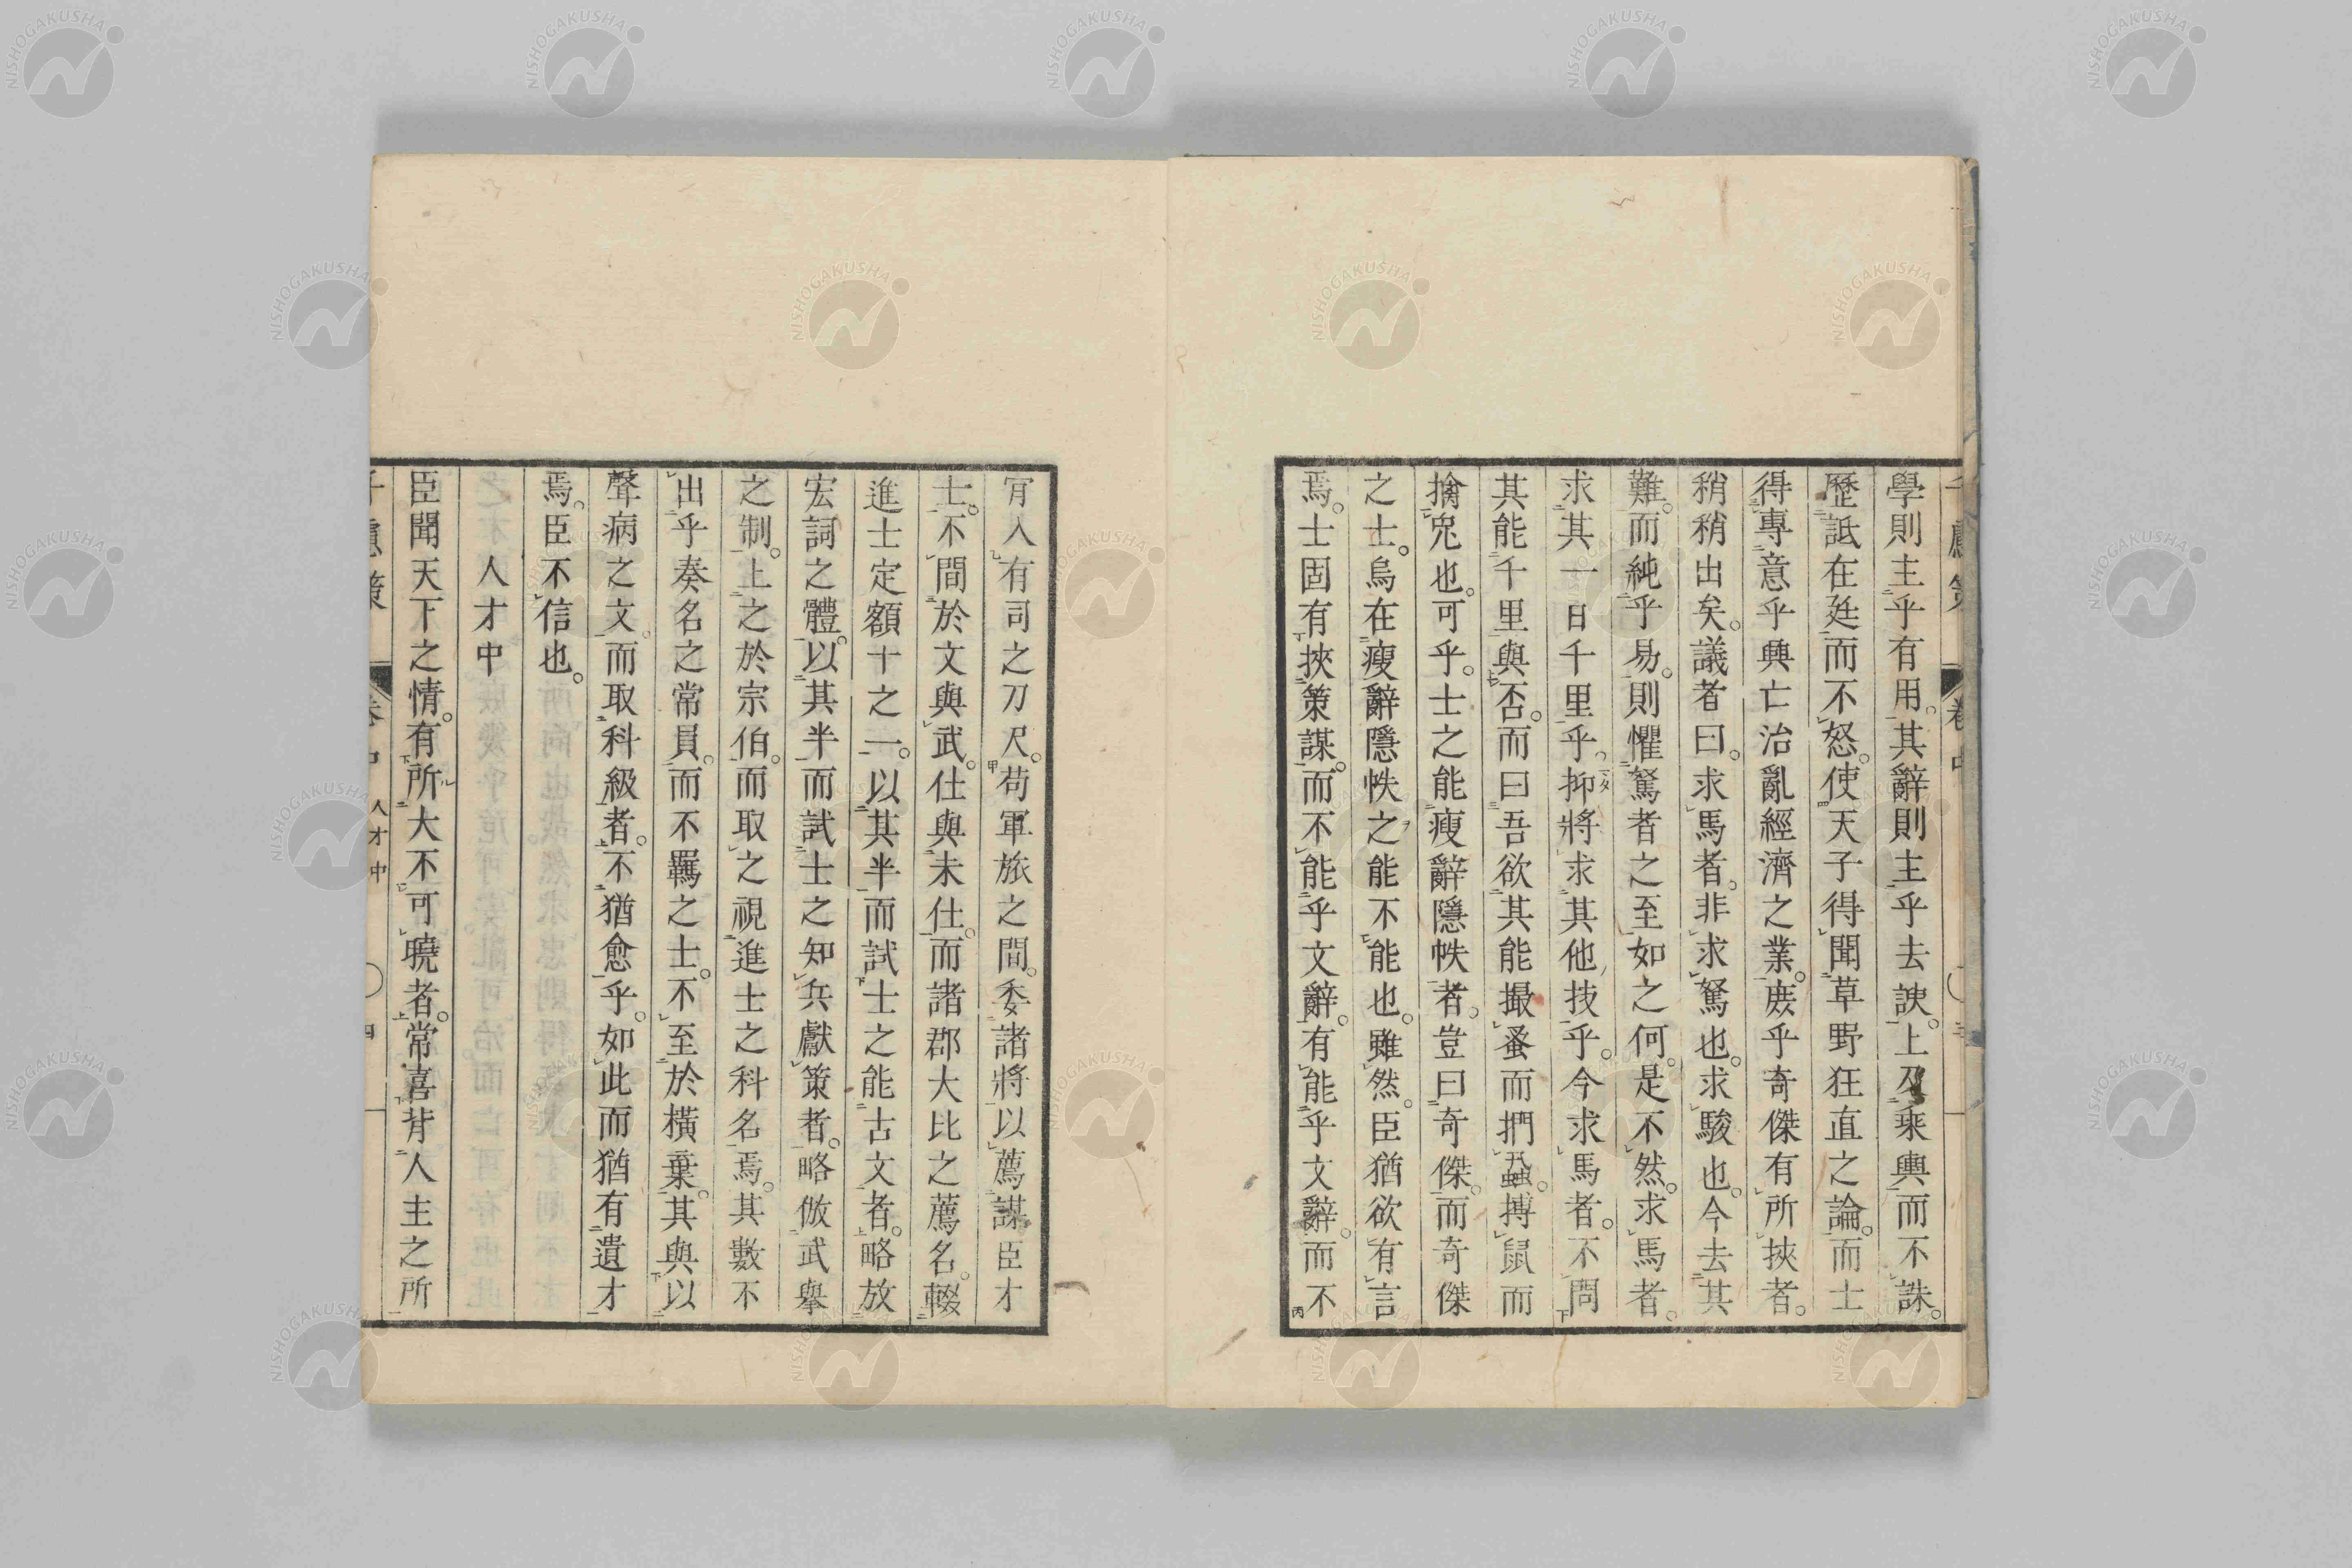 學則主乎有用。其辭則主乎去諛。上及乘輿而不誅。
歷詆在廷而不怒。使天子得聞草野狂直之論。而士
得專意乎興亡治亂經濟之業。庶乎奇傑有所挾者。
稍稍出矣。議者曰。求馬者。非求駑也。求駿也。今去其
難。而純乎易。則懼駑者之至如之何。是不然。求馬者。
求其一日千里乎。抑將求其他技乎。今求馬者。不問
其能千里與否。而曰吾欲其能撮蚤而捫蝨。搏鼠而
擒兎也。可乎。士之能瘦辭隱帙者。豈曰奇傑。而奇傑
之士。烏在瘦辭隱帙之能不能也。雖然。臣猶欲有言
焉。士固有挾策謀。而不能乎文辭。有能乎文辭。而不
肯入有司之刀尺。苟軍旅之間。委諸將以薦謀臣才
士。不問於文與武。仕與未仕。而諸郡大比之薦名。輟
進士定額十之一。以其半而試士之能古文者。略放
宏詞之體。以其半而試士之知兵獻策者。略倣武擧
之制。上之於宗伯。而取之視進士之科名焉。其數不
出乎奏名之常員。而不羈之士。不至於橫棄。其與以
聲病之文。而取科級者。不猶愈乎。如此而猶有遺才
焉。臣不信也。
人才中
臣聞天下之情。有所大不可曉者。常喜背人主之所
千慮策
卷中 人才中 四